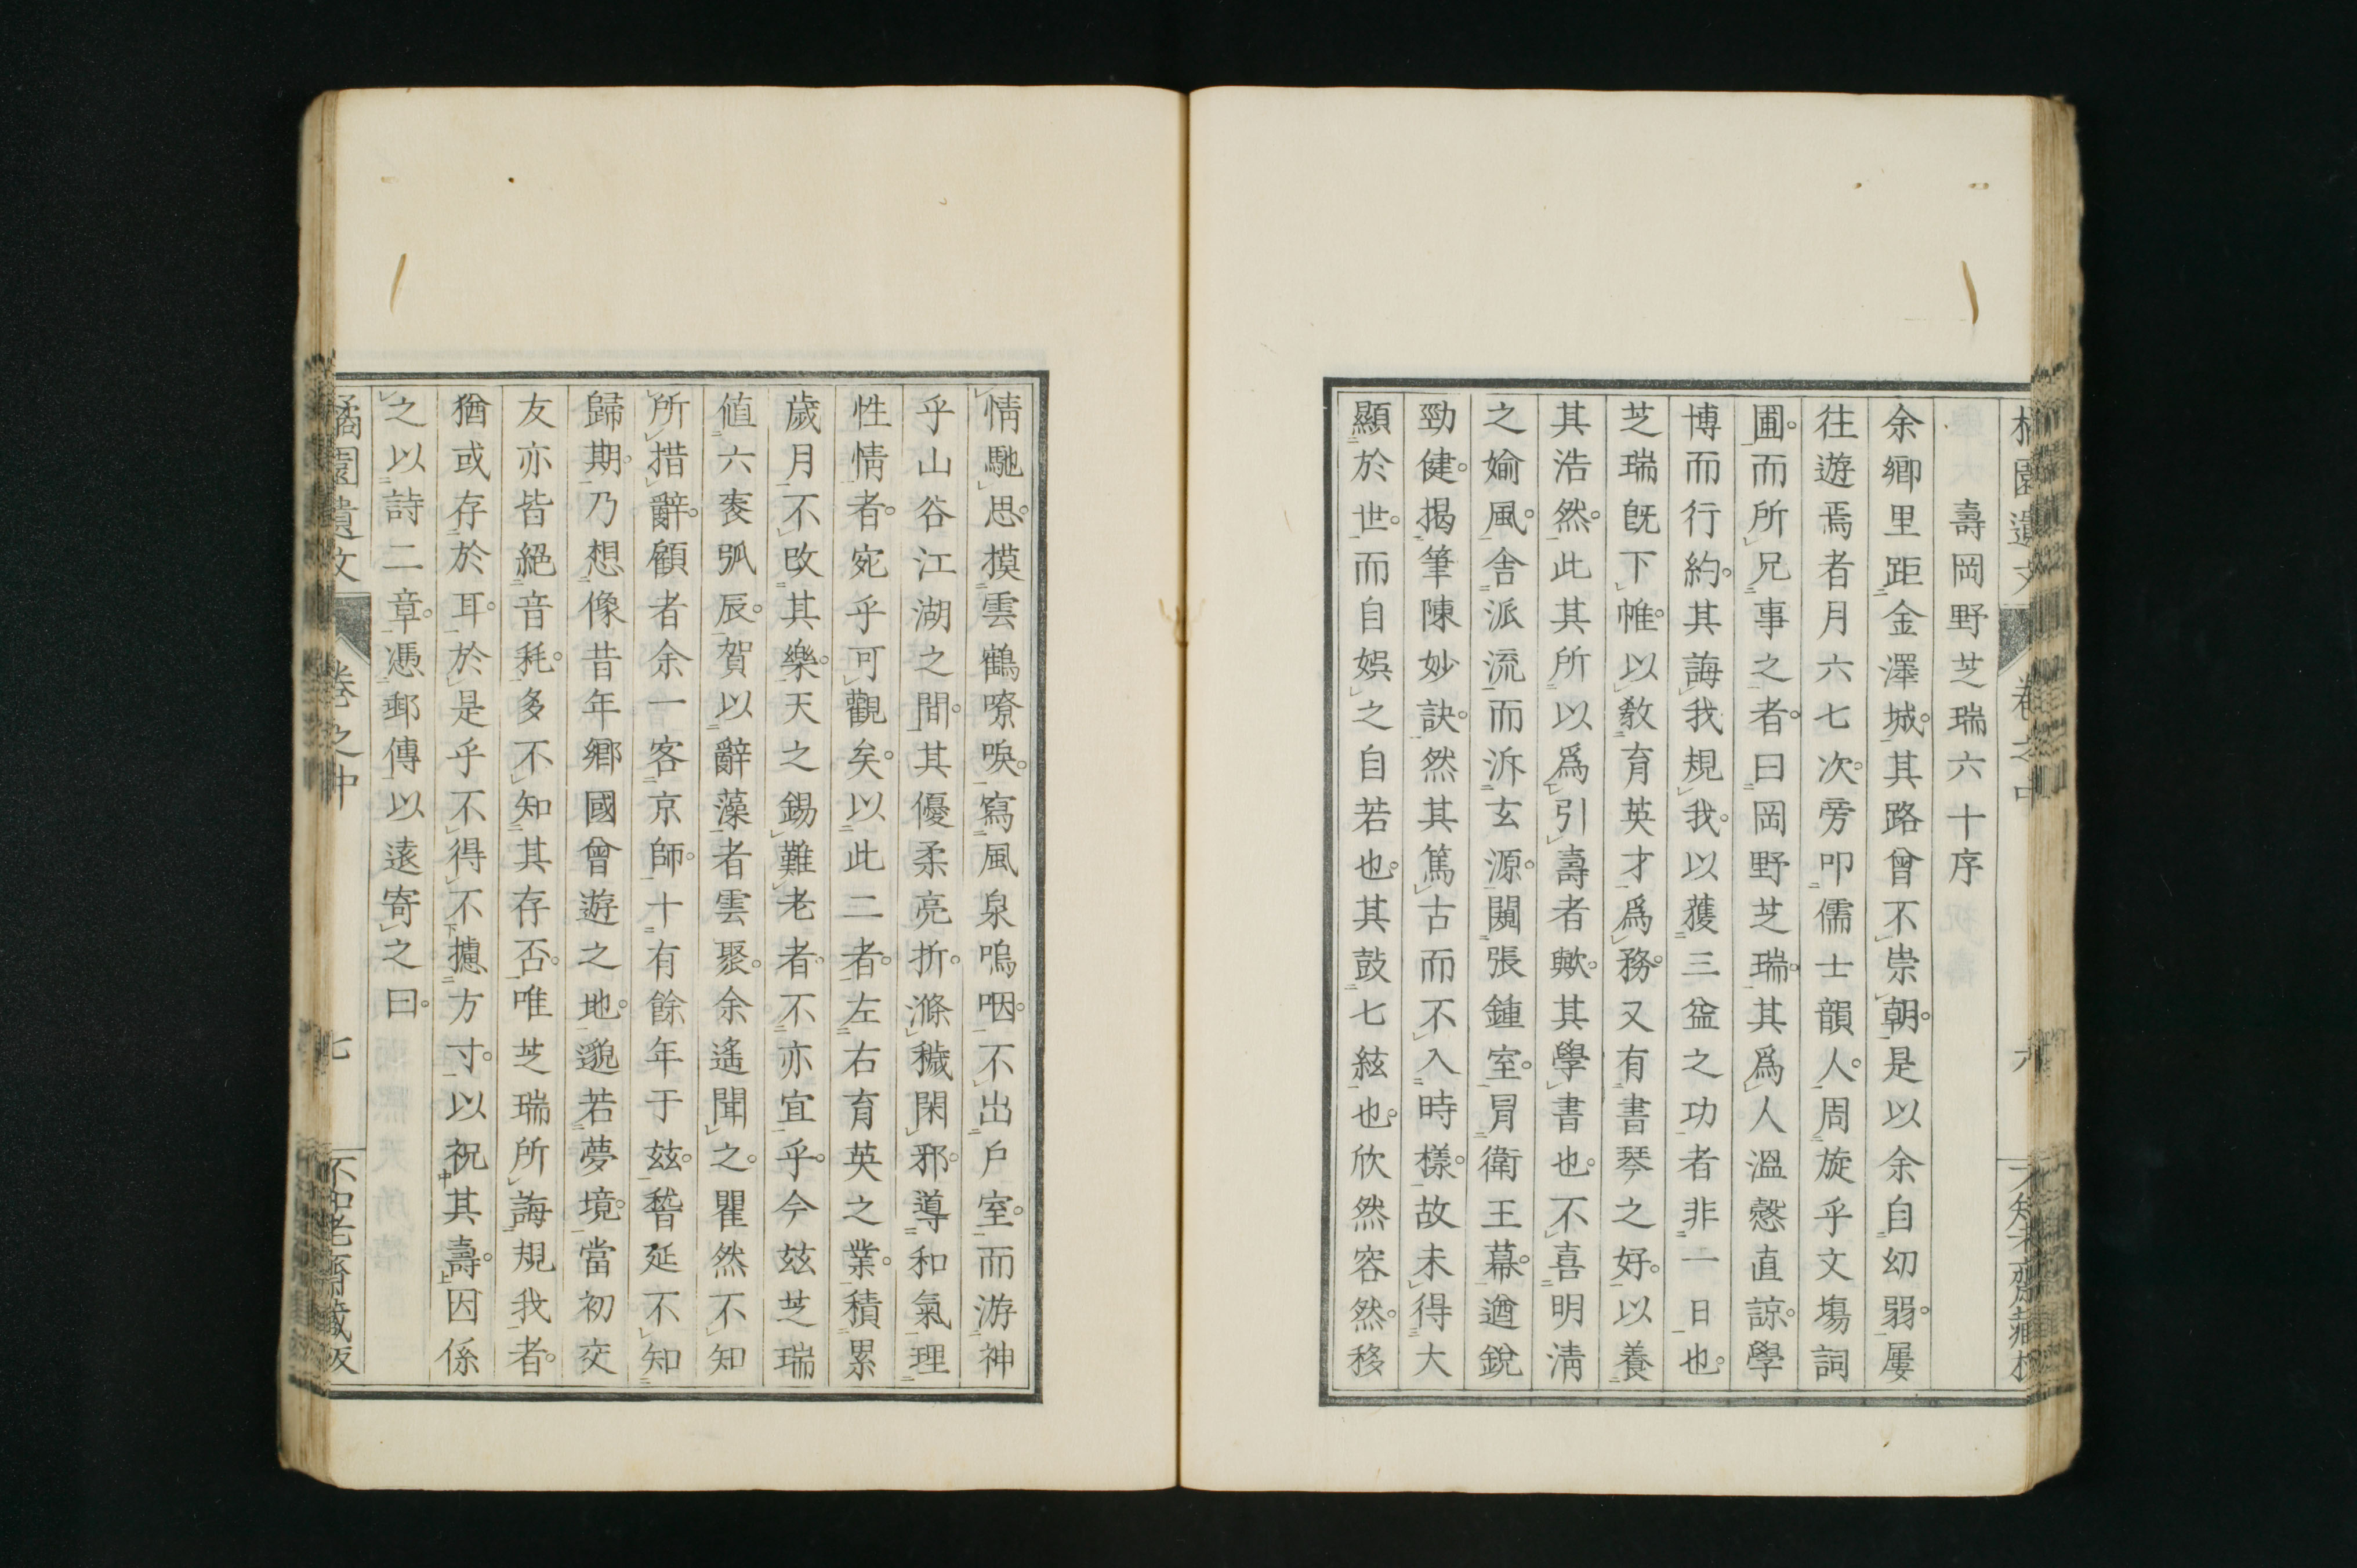 壽岡野芝瑞六十序
余鄉里距金澤城。其路曾不崇朝。是以余自幼弱。屢
往遊焉者月六七次。旁叩儒士韻人。周旋乎文場詞
圃。而所兄事之者。曰岡野芝瑞。其爲人溫慤直諒。學
博而行約。其誨我規我。以獲三益之功者非一日也。
芝瑞既下帷。以教育英才爲務。又有書琴之好。以養
其浩然。此其所以爲引壽者歟。其學書也。不喜明清
之媮風。舍派流而泝玄源。闖張鍾室。冐衛王幕。遒銳
勁健。揭筆陳妙訣。然其篤古而不入時樣。故未得大
顯於世。而自娛之自若也。其鼓七絃也。欣然容然。移
情馳思。摸雲鶴嘹唳。寫風泉嗚咽。不出戶室。而游神
乎山谷江湖之間。其優柔亮折。滌穢閑邪。導和氣理
性情者。宛乎可觀矣。以此二者。左右育英之業。積累
歲月。不改其樂。天之錫難老者。不亦宜乎。今玆芝瑞
値六袠弧辰。賀以辭藻者雲聚。余遙聞之。瞿然不知
所措辭。顧者余一客京師。十有餘年于玆。稽延不知
歸期。乃想像昔年鄉國曾遊之地。邈若夢境。當初交
友亦皆絕音耗。多不知其存否。唯芝瑞所誨規我者。
猶或存於耳。於是乎不得不攄方寸。以祝其壽。因係
之以詩二章。憑郵傳以遠寄之曰。
橘園遺文 卷之中 七